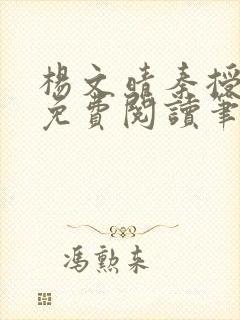 楊文晴秦授
免費閱讀筆
馮勲來